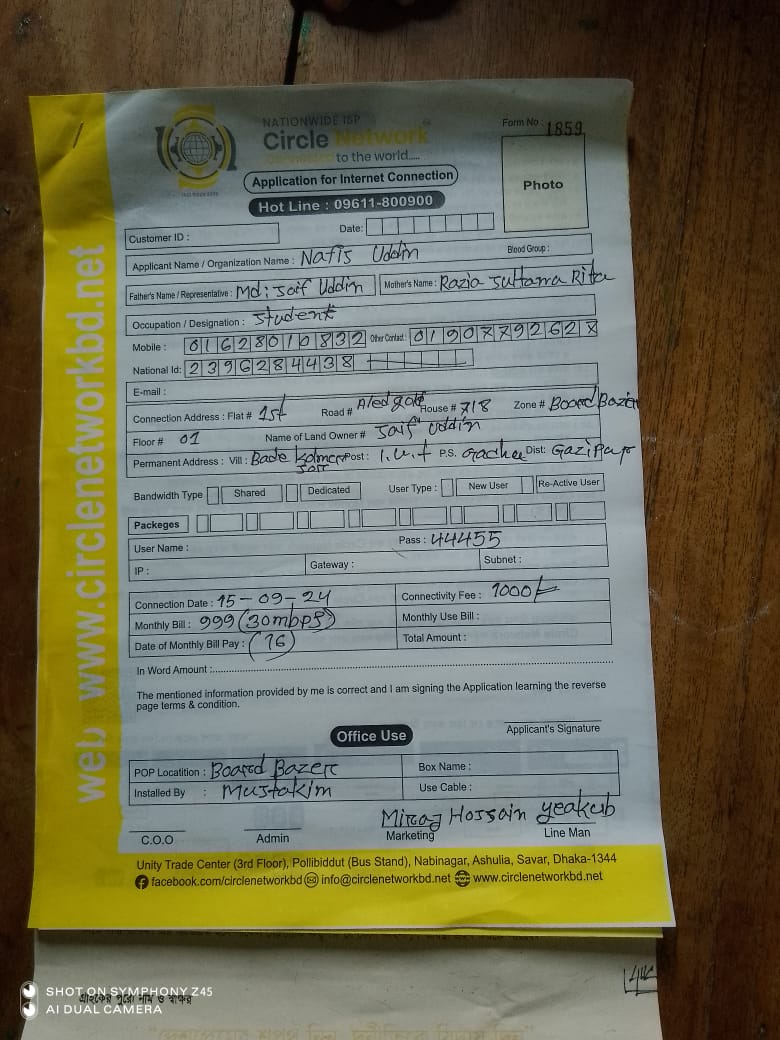 NATIONWIDE ISP
Circle Network
Connected to the world.....
Form No : 1859
Application for Internet Connection
Hot Line : 09611-800900
Photo
Customer ID :
Date:
Applicant Name / Organization Name : Nafis Uddin Blood Group :
Father's Name / Representative : Md: Saif Uddin Mother's Name : Razia Sultana Rita
Occupation / Designation : Student
Mobile : 01628010832 Other Contact : 0190779262X
National Id: 2396284438
E-mail :
Connection Address : Flat # 1st Road # House # 718 Zone # Board Bazer
Floor # 01 Name of Land Owner # Saif Uddin
Permanent Address : Vill : Bade Post : I.U.T P.S. Gacha Dist: Gazipur
Bandwidth Type Shared Dedicated User Type : New User Re-Active User
Packeges
User Name : Pass : 44455
IP : Gateway : Subnet :
Connection Date : 15-09-24 Connectivity Fee : 1000/-
Monthly Bill : 999 (30mbps) Monthly Use Bill :
Date of Monthly Bill Pay : (16) Total Amount :
In Word Amount :
The mentioned information provided by me is correct and I am signing the Application learning the reverse
page terms & condition.
Applicant's Signature
Office Use
POP Locatition : Board Bazer Box Name :
Installed By : Mustakim Use Cable :
Miraj Hossain yeakub
C.O.O Admin Marketing Line Man
Unity Trade Center (3rd Floor), Pollibiddut (Bus Stand), Nabinagar, Ashulia, Savar, Dhaka-1344
facebook.com/circlenetworkbd info@circlenetworkbd.net www.circlenetworkbd.net
web www.circlenetworkbd.net
গ্রাহকের পুরো নাম ও স্বাক্ষর
SHOT ON SYMPHONY Z45
AI DUAL CAMERA